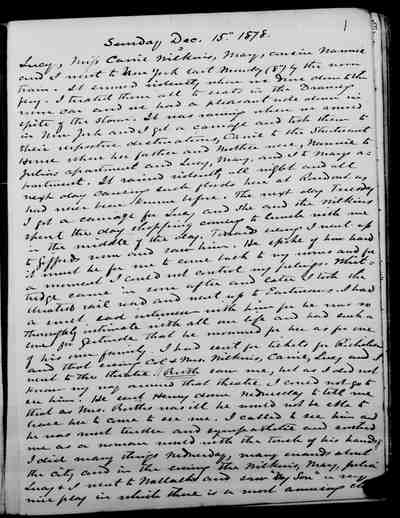 1
Sunday Dec. 15th 1878.
Lucy, Miss Carrie Wilkins, May, cousin Nannie
and I went to New York last Monday (8th) by the noon
train. It stormed violently when we drove down to the
ferry. I treated them all to seats in the Drawing
room car and we had a pleasant ride down in
spite of the storm. It was raining when we arrived
in New York and I got a carriage and took them to
their respective destinations, Carrie to the Sturtevant
House where her father and mother were, Nannie to
Julia's apartment and Lucy, May, and I to Mary's a-
partment. It rained violently all night and all
next day causing such floods here at Rondout as
had never been known before. The next day Tuesday
I got a carriage for Lucy and she and the Wilkins
spent the day shopping coming to lunch with me
in the middle of the day. Tuesday evening I went up
to Gifford's room and saw him. He spoke of how hard
it must be for me to come back to my rooms and for
a moment I could not control my feelings. Whit-
tredge came in soon after and later I took the
elevated rail road and went up to Eastman's. I had
a most sad interview with him for he was so
thoroughly intimate with all our life and had such a
love for Gertrude that he mourned for her as for one
of his own family. I had sent for tickets for Richelieu
and that evening Col & Mrs. Wilkins, Carrie, Lucy and I
went to the theatre. Booth saw me, but as I did not
know my way around that theatre I could not go to
see him. He sent Henry down Wednesday to tell me
that as Mrs. Booth was ill he would not be able to
leave her to come to see me. I called to see him and
he was most tender and sympathetic and soothed
me as a woman would with the touch of his hands.
I did many things Wednesday, many errands about
the city and in the evening the Wilkins, May, Julia
Lucy & I went to Wallack's and saw "My Son" a very
nice play in which there is a most amusing